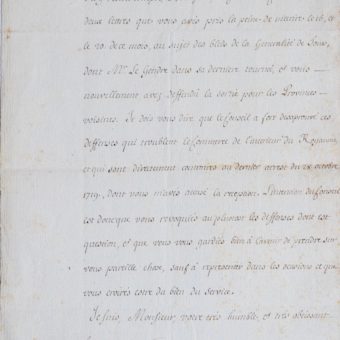 deux lettres que vous avés pris la peine de m'ecrire le 16, et
le 20. de ce mois, au sujet des bleds de la Generalité de Tours,
dont Mr. Le Gendre dans sa derniere tournée, et vous
nouvellement avez deffendu la sortie pour les Provinces
voisines. Je dois vous dire que le Conseil a fort desaprouvé ces
deffenses qui troublent le Commerce de l'interieur du Royaume,
et qui sont directement contraires au dernier arrest du 28. octobre
1719. dont vous m'avés accusé la reception. L'intention du Conseil
est donc que vous revoquiés au plustost les deffenses dont est
question, et que vous vous gardiés bien à l'avenir de prendre sur
vous pareille chose, sauf à representer dans les occasions ce que
vous croirés estre du bien du service.
Je suis, Monsieur, votre tres humble, et tres obeissant